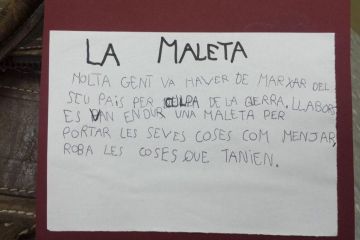 LA MALETA
MOLTA GENT VA HAVER DE MARXAR DEL
SEU PAIS PER CULPA DE LA GERRA. LLABORS
ES VAN ENDUR UNA MALETA PER
PORTAR LES SEVES COSES COM MENJAR,
ROBA LES COSES QUE TANIEN.